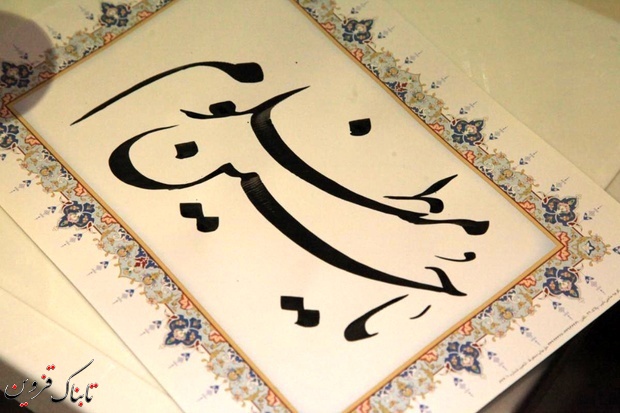 یا حسین مظلوم
تابناک قزوین